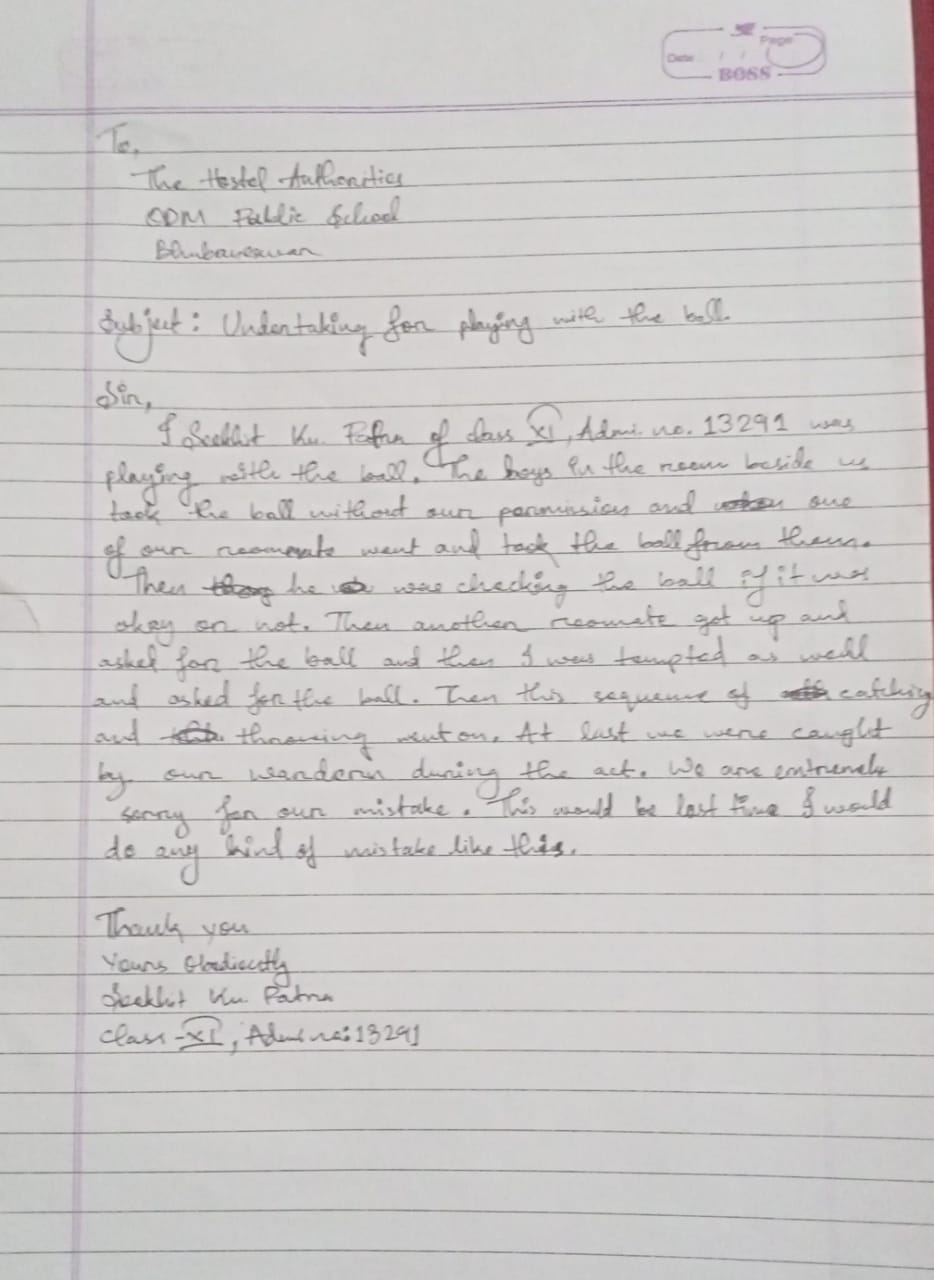 Date / / Page
BOSS
To,
The Hostel Authorities
ODM Public School
Bhubaneswar
Subject: Undertaking for playing with the ball.
Sir,
I Ku. Patra of class XI, Admi. no. 13291 was
playing with the ball. The boys in the room beside us
took the ball without our permission and one
of our roommate went and took the ball from them.
Then he was checking the ball if it was
okay or not. Then another roomate got up and
asked for the ball and then I was tempted as well
and asked for the ball. Then this sequence of catching
and throwing went on. At last we were caught
by our warden during the act. We are extremely
sorry for our mistake. This would be last time I would
do any kind of mistake like this.
Thank you
Yours Obediently
Ku. Patra
Class - XI, Admi no: 13291